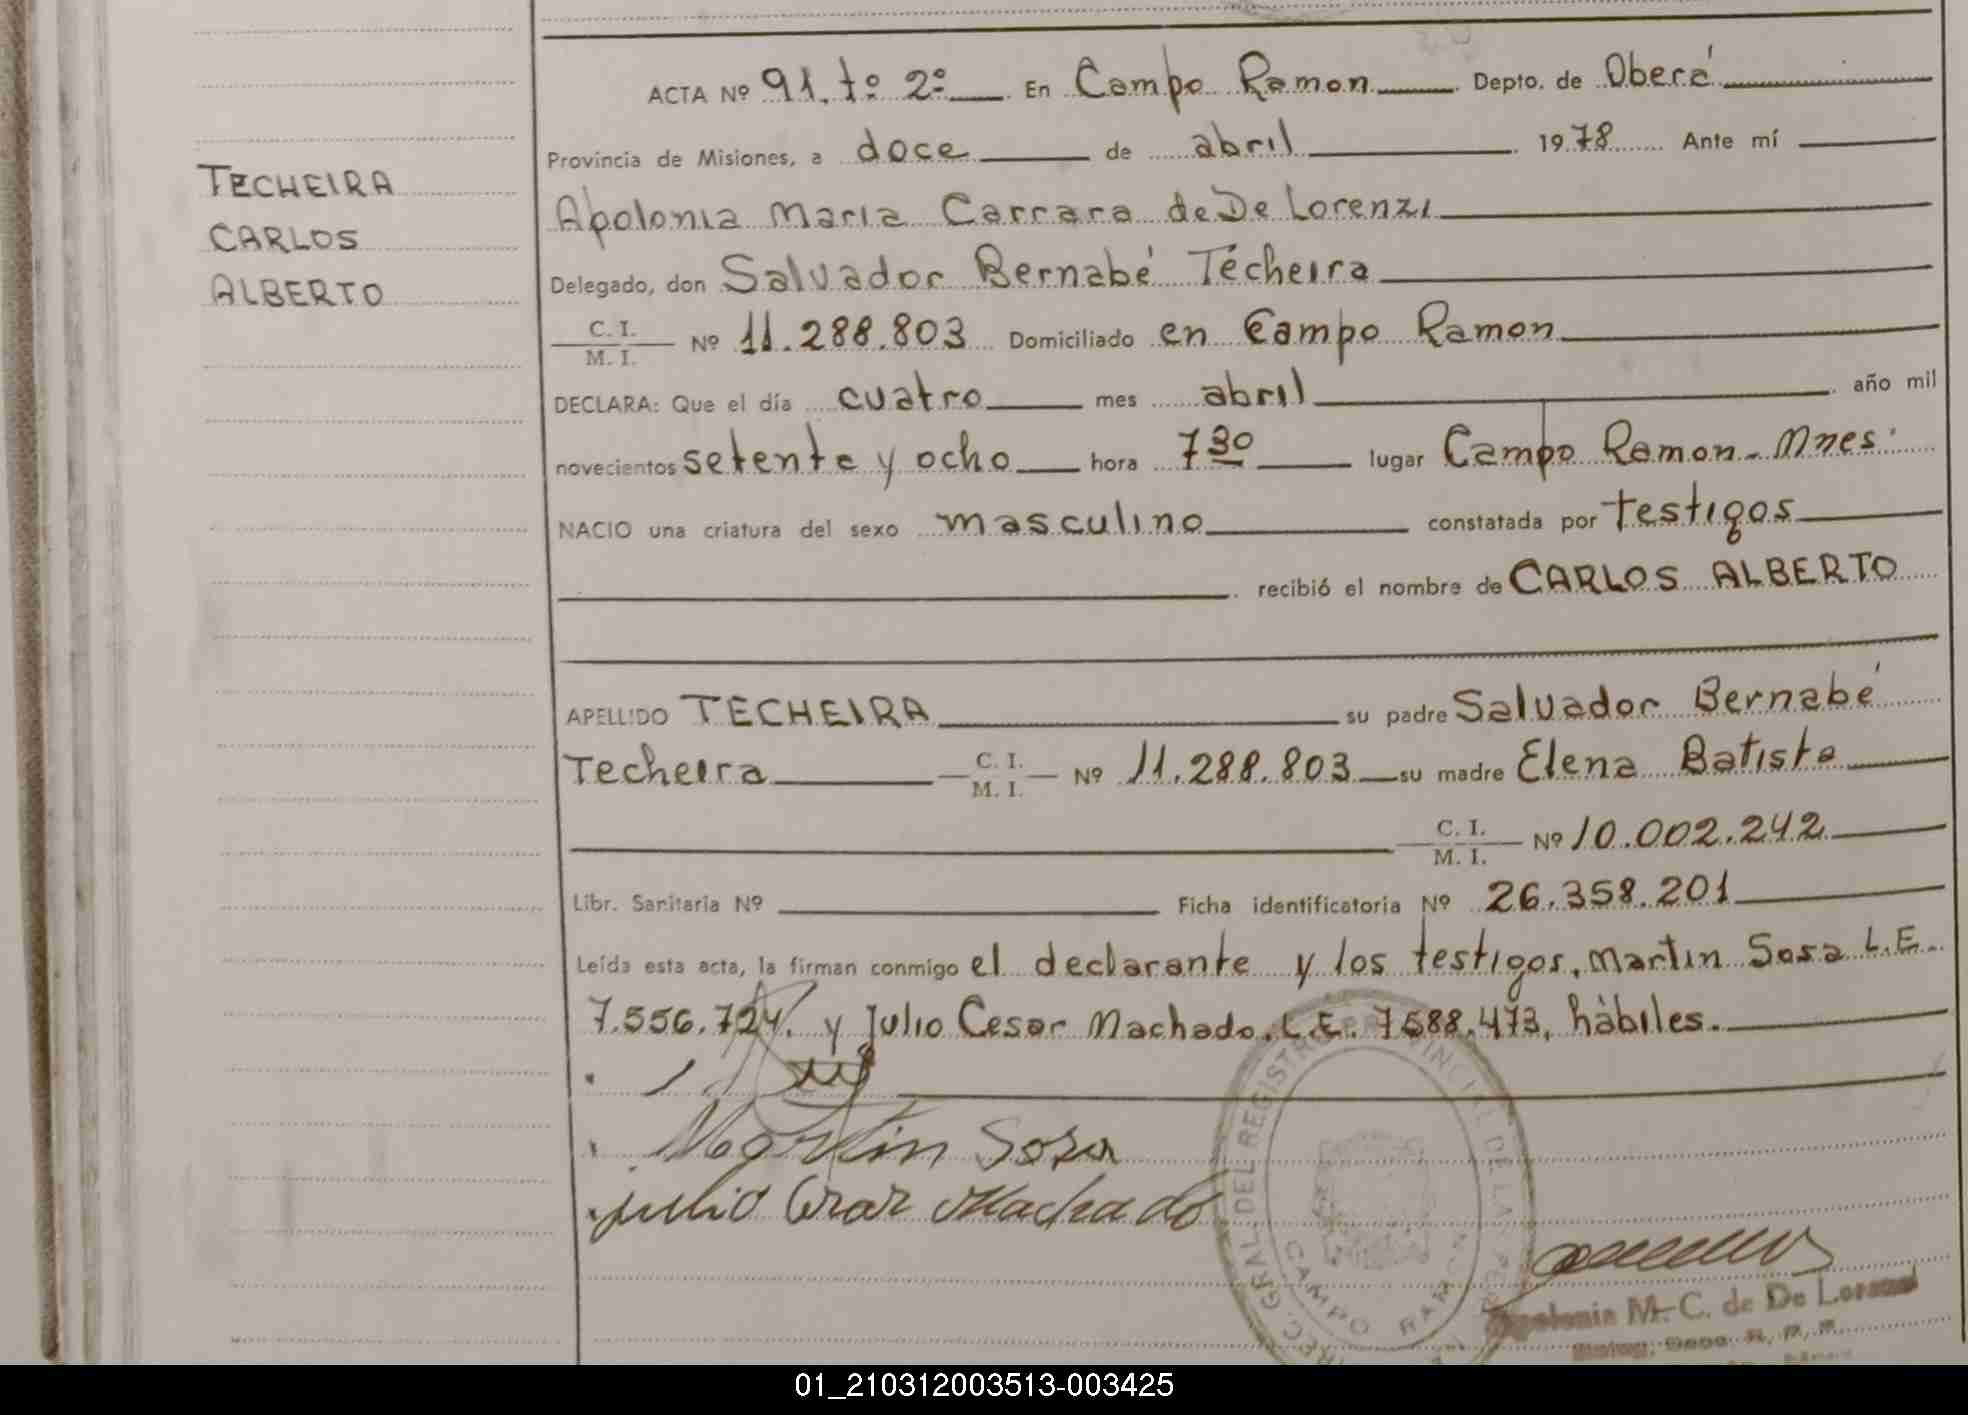 ACTA Nº 91. tº 2º En Campo Ramon Depto. de Oberá
Provincia de Misiones, a doce de abril 1978 Ante mí
TECHEIRA
CARLOS
ALBERTO
Apolonia Maria Carrara de De Lorenzi
Delegado, don Salvador Bernabé Techeira
C. I.
M. I. Nº 11.288.803 Domiciliado en Campo Ramon
DECLARA: Que el día cuatro mes abril año mil
novecientos setenta y ocho hora 7 30 lugar Campo Ramon - Mnes.
NACIO una criatura del sexo masculino constatada por testigos
recibió el nombre de CARLOS ALBERTO
APELLIDO TECHEIRA su padre Salvador Bernabé
Techeira C. I. M. I. Nº 11.288.803 su madre Elena Batista
C. I. M. I. Nº 10.002.242
Libr. Sanitaria Nº Ficha identificatoria Nº 26.358.201
Leída esta acta, la firman conmigo el declarante y los testigos, Martin Sosa L.E.
7.556.724. y Julio Cesar Machado. L.E. 7588.473, hábiles.
Martin Sosa
Julio Cesar Machado
GRAL. DEL REGISTRO PROVINCIAL DE LAS PER
CAMPO RAMON
Apolonia M. C. de De Lorenzi
01_210312003513-003425